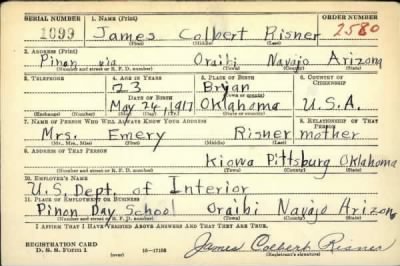 SERIAL NUMBER 1. NAME (Print) ORDER NUMBER
1099 James Colbert Risner 2580
(First) (Middle) (Last)
2. ADDRESS (Print)
Pinon via Oraibi Navajo Arizona
(Number and street or R. F. D. number) (Town) (County) (State)
3. TELEPHONE 4. AGE IN YEARS 5. PLACE OF BIRTH 6. COUNTRY OF CITIZENSHIP
23 Bryan
DATE OF BIRTH (Town or county)
May 24, 1917 Oklahoma U.S.A.
(Exchange) (Number) (Mo.) (Day) (Yr.) (State or country)
7. NAME OF PERSON WHO WILL ALWAYS KNOW YOUR ADDRESS 8. RELATIONSHIP OF THAT PERSON
Mrs. Emery Risner mother
(Mr., Mrs., Miss) (First) (Middle) (Last)
9. ADDRESS OF THAT PERSON
Kiowa Pittsburg Oklahoma
(Number and street or R. F. D. number) (Town) (County) (State)
10. EMPLOYER'S NAME
U.S. Dept. of Interior
11. PLACE OF EMPLOYMENT OR BUSINESS
Pinon Day School Oraibi Navajo Arizona
(Number and street or R. F. D. number) (Town) (County) (State)
I AFFIRM THAT I HAVE VERIFIED ABOVE ANSWERS AND THAT THEY ARE TRUE.
REGISTRATION CARD
D. S. S. Form 1 (over) 16—17105 James Colbert Risner
(Registrant's signature)